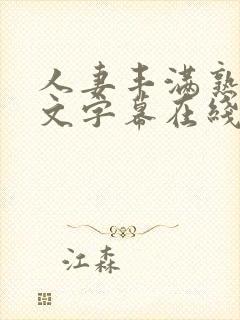 人妻丰满熟
文字幕在线
江森